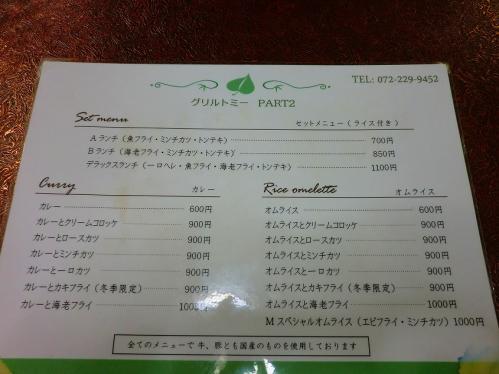 TEL: 072-229-9452
グリルトミー PART2
Set menu セットメニュー(ライス付き)
Aランチ(魚フライ・ミンチカツ・トンテキ) 700円
Bランチ(海老フライ・ミンチカツ・トンテキ) 850円
デラックスランチ(一口ヘレ・魚フライ・海老フライ・トンテキ) 1100円
Curry カレー
カレー 600円
カレーとクリームコロッケ 900円
カレーとロースカツ 900円
カレーとミンチカツ 900円
カレーと一口カツ 900円
カレーとカキフライ(冬季限定) 900円
カレーと海老フライ 1000円
Rice omelette オムライス
オムライス 600円
オムライスとクリームコロッケ 900円
オムライスとロースカツ 900円
オムライスとミンチカツ 900円
オムライスと一口カツ 900円
オムライスとカキフライ(冬季限定) 900円
オムライスと海老フライ 1000円
Mスペシャルオムライス(エビフライ・ミンチカツ) 1000円
全てのメニューで牛、豚とも国産のものを使用しております